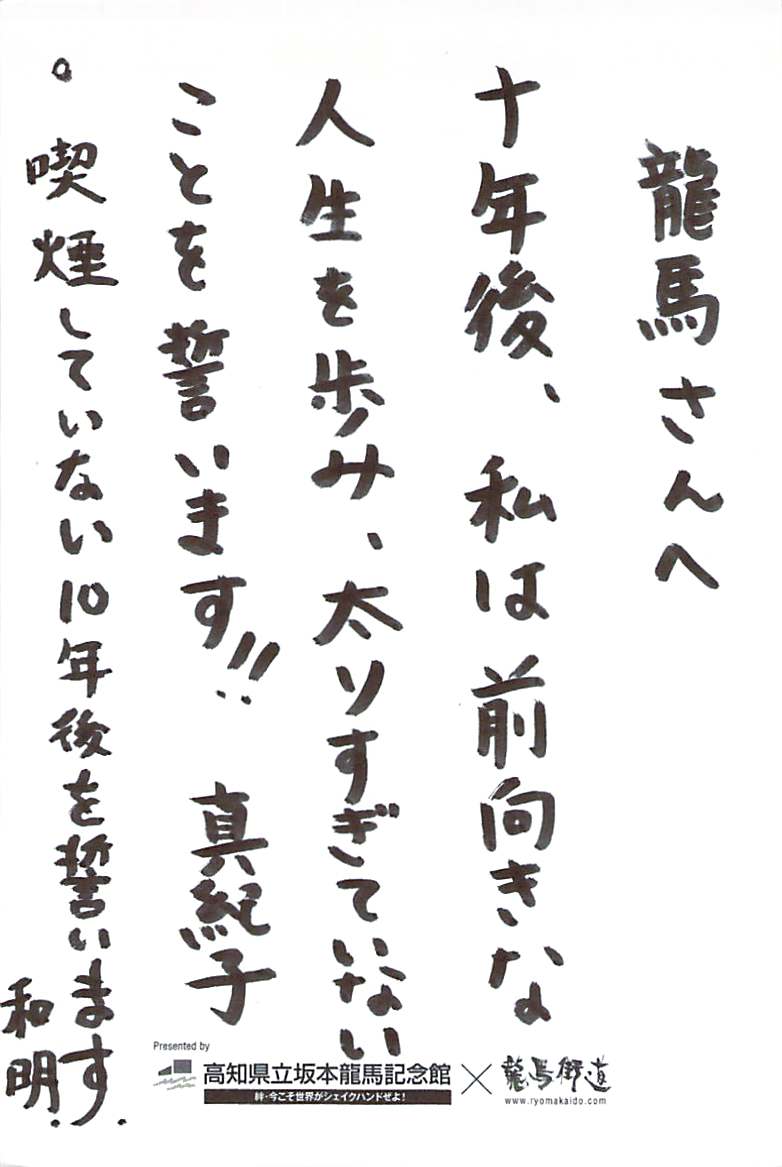 龍馬さんへ
十年後、私は前向きな
人生を歩み、太りすぎていない
ことを誓います!! 真紀子
。喫煙していない10年後を誓います.
和明.
Presented by
高知県立坂本龍馬記念館
絆・今こそ世界がシェイクハンドせよ!
×
龍馬街道
www.ryomakaido.com